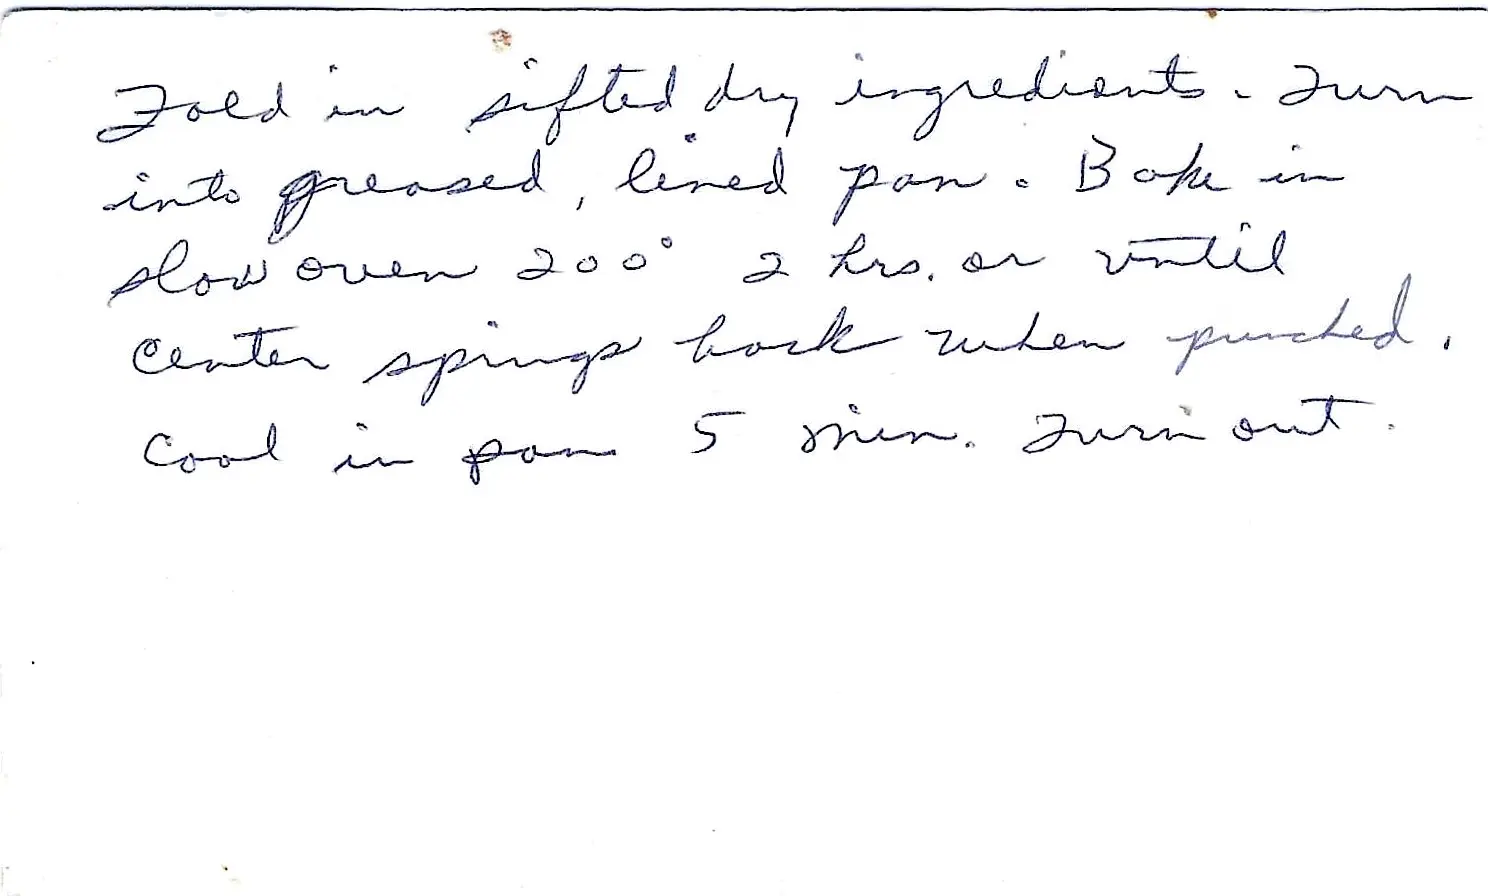 Fold in sifted dry ingredients. Turn
into greased, lined pan. Bake in
slow oven 200° 2 hrs. or until
center springs back when punched.
Cool in pan 5 min. Turn out.